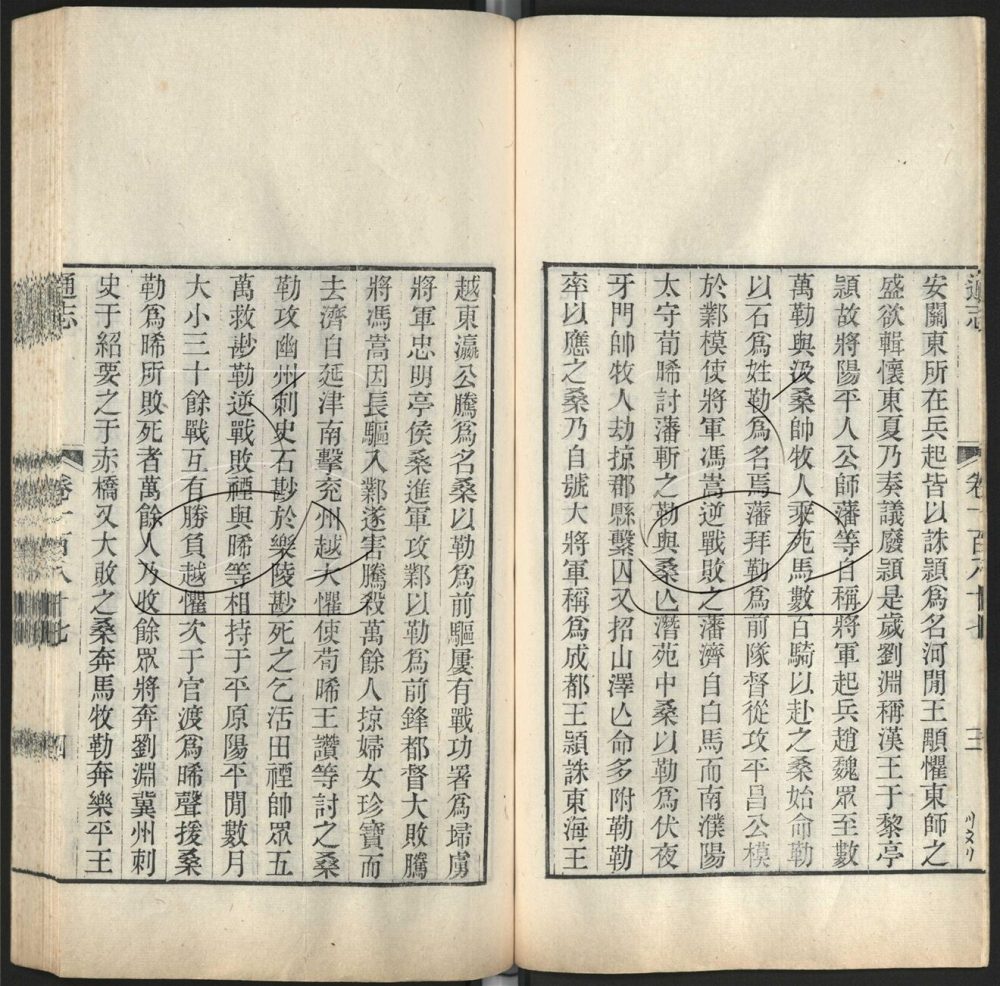 通志
卷一百八十七
三
安關東所在兵起皆以誅穎爲名河閒王顒懼東師之
盛欲輯懷東夏乃奏議廢穎是歲劉淵稱漢王于黎亭
穎故將陽平人公師藩等自稱將軍起兵趙魏眾至數
萬勒與汲桑帥牧人乘苑馬數百騎以赴之桑始命勒
以石爲姓勒爲名焉藩拜勒爲前隊督從攻平昌公模
於鄴模使將軍馮嵩逆戰敗之藩濟自白馬而南濮陽
太守荀晞討藩斬之勒與桑亾潛苑中桑以勒爲伏夜
牙門帥牧人劫掠郡縣繫囚又招山澤亾命多附勒勒
率以應之桑乃自號大將軍稱爲成都王穎誅東海王
越東瀛公騰爲名桑以勒爲前驅屢有戰功署爲埽虜
將軍忠明亭侯桑進軍攻鄴以勒爲前鋒都督大敗騰
將馮嵩因長驅入鄴遂害騰殺萬餘人掠婦女珍寶而
去濟自延津南擊兗州越大懼使荀晞王讚等討之桑
勒攻幽州刺史石尠於樂陵尠死之乞活田禋帥眾五
萬救尠勒逆戰敗禋與晞等相持于平原陽平閒數月
大小三十餘戰互有勝負越懼次于官渡爲晞聲援桑
勒爲晞所敗死者萬餘人乃收餘眾將奔劉淵冀州刺
史于紹要之于赤橋又大敗之桑奔馬牧勒奔樂平王
通志
卷一百八十七
四